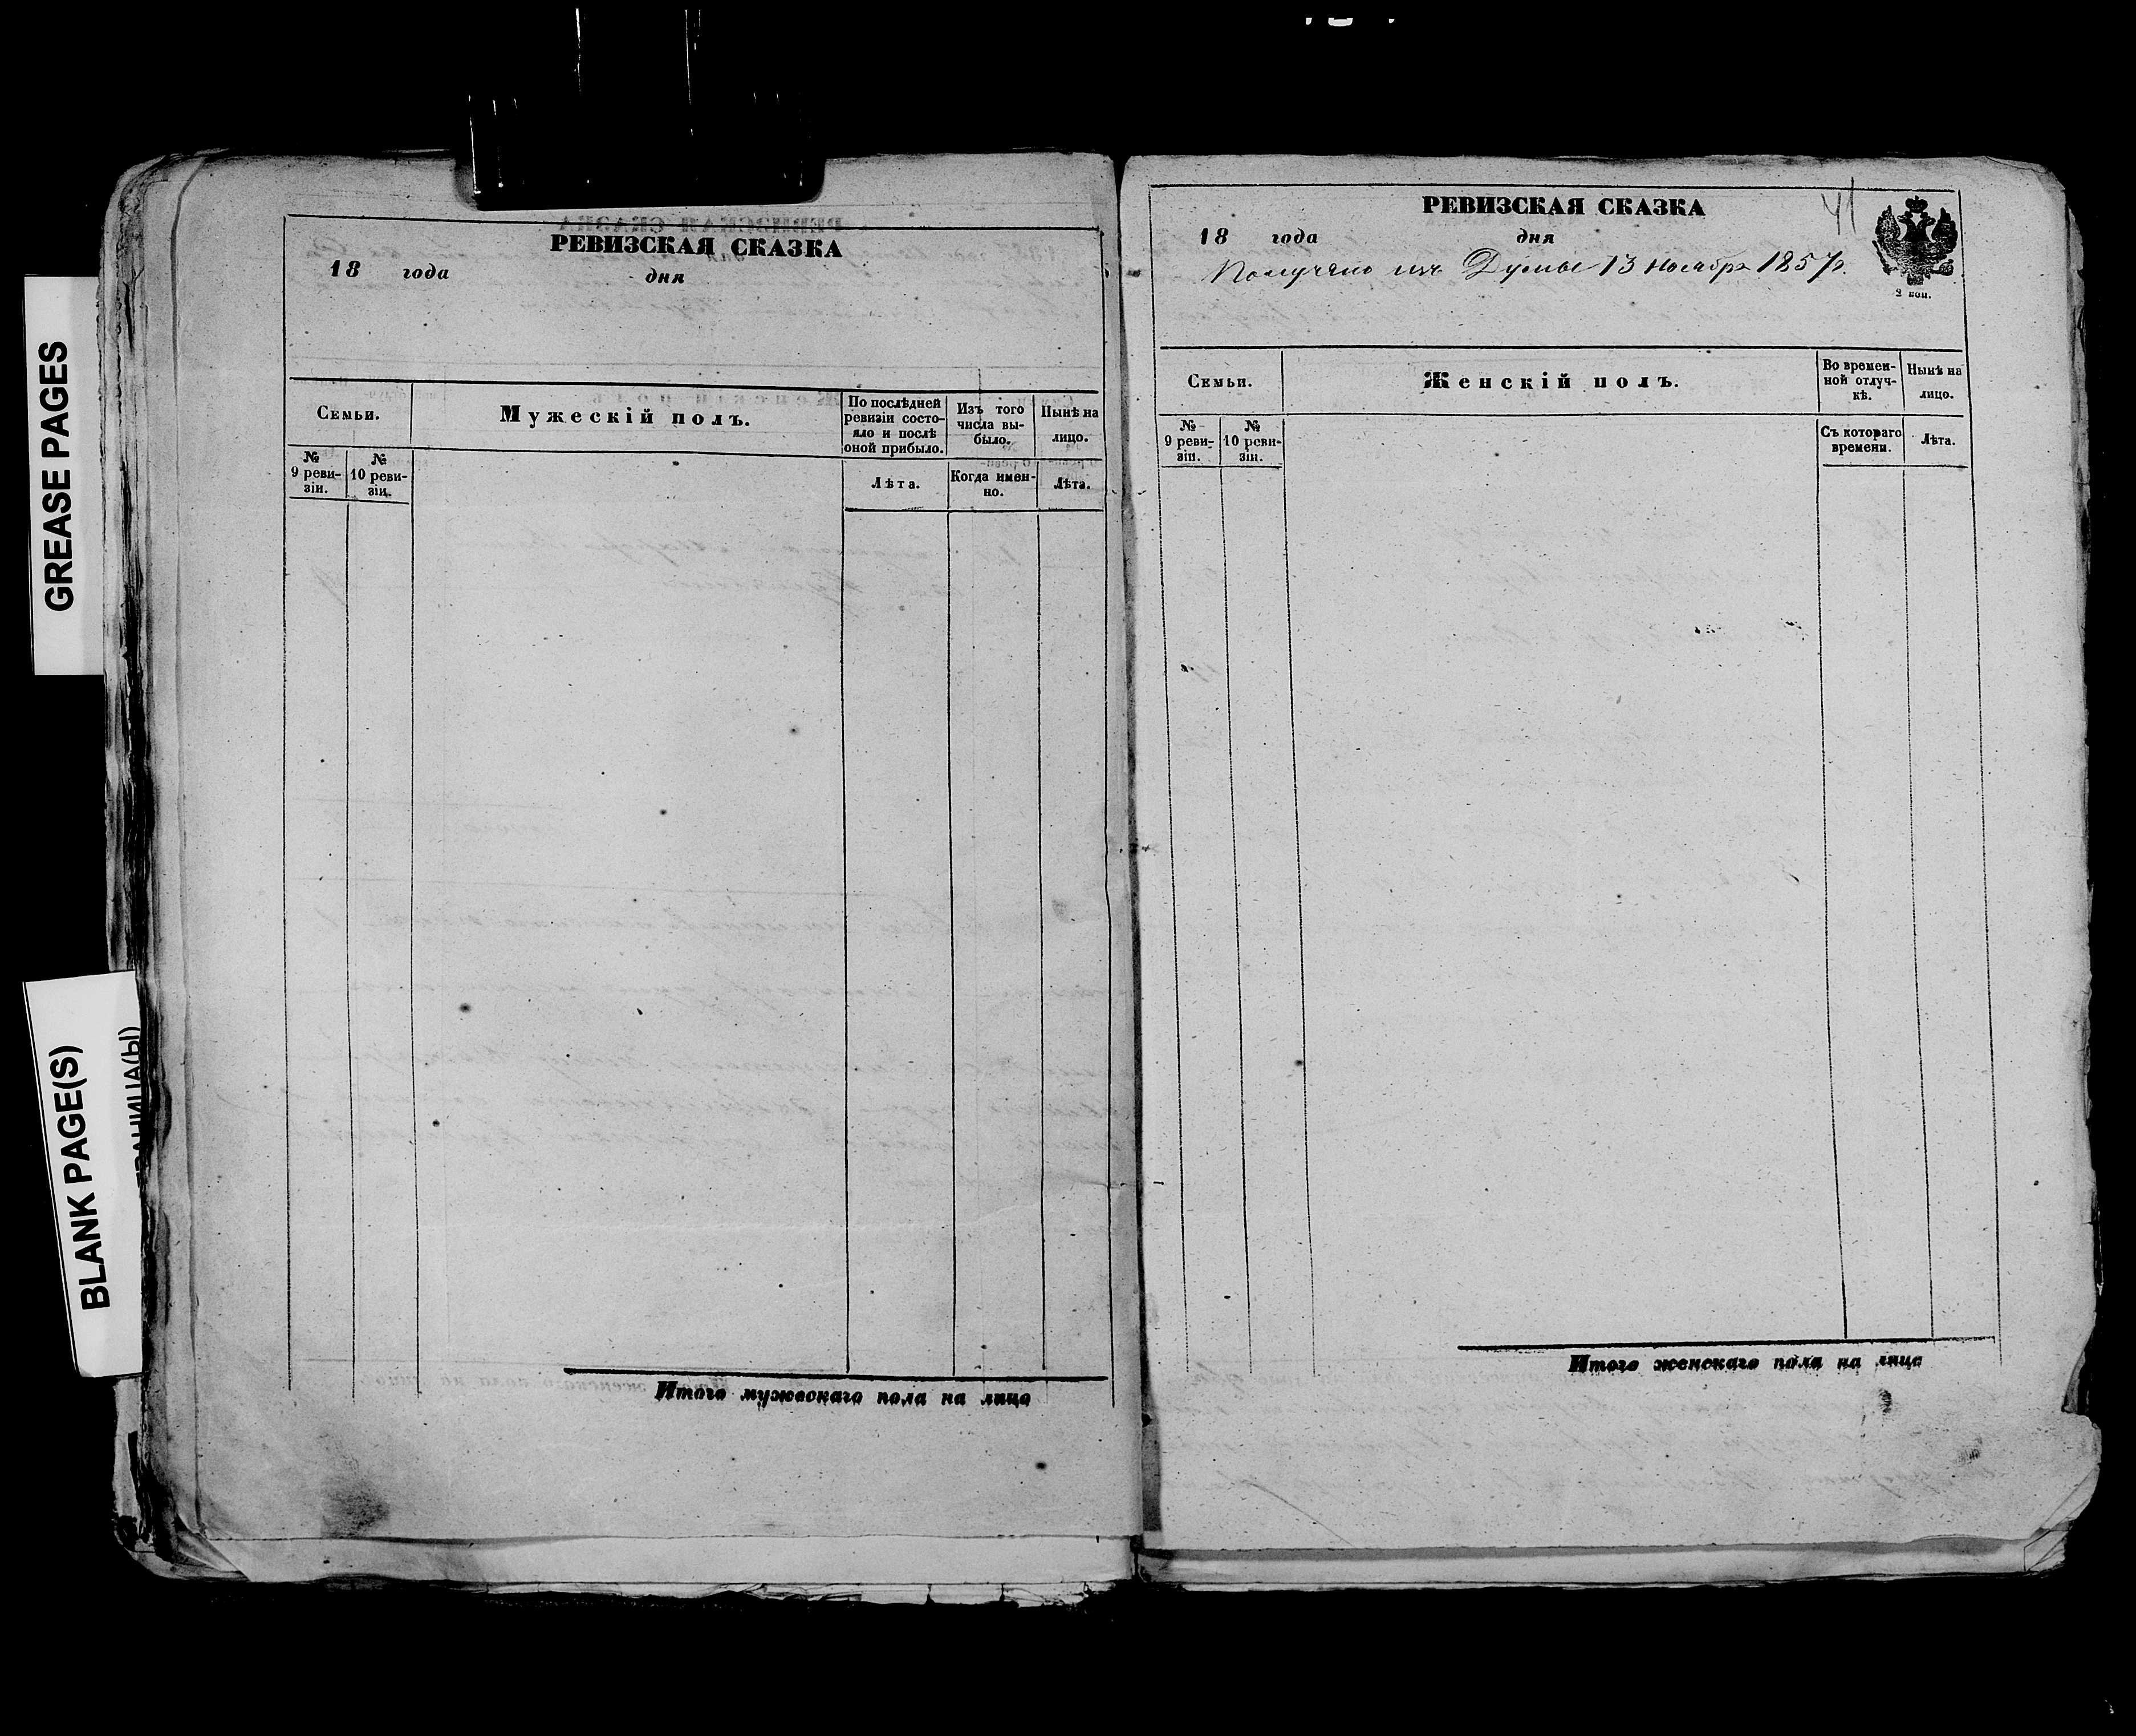 GREASE PAGES
BLANK PAGE(S)
РЕВИЗСКАЯ СКАЗКА
18 года дня
Семьи.
Мужескій полъ.
По послѣдней ревизіи состо-
яло и послѣ
оной прибыло.
Изъ того
числа вы-
было.
Нынѣ на
лицо.
№
9 реви-
зіи.
№
10 реви-
зіи.
Лѣта.
Когда имен-
но.
Лѣта.
Итого мужескаго пола на лицо
41
РЕВИЗСКАЯ СКАЗКА
18 года дня
Получено изъ Думы 13 Ноября 1857 г.
2 коп.
Семьи.
Женскій полъ.
Во времен-
ной отлуч-
кѣ.
Нынѣ на
лицо.
№
9 реви-
зіи.
№
10 реви-
зіи.
Съ котораго
времени.
Лѣта.
Итого женскаго пола на лицо